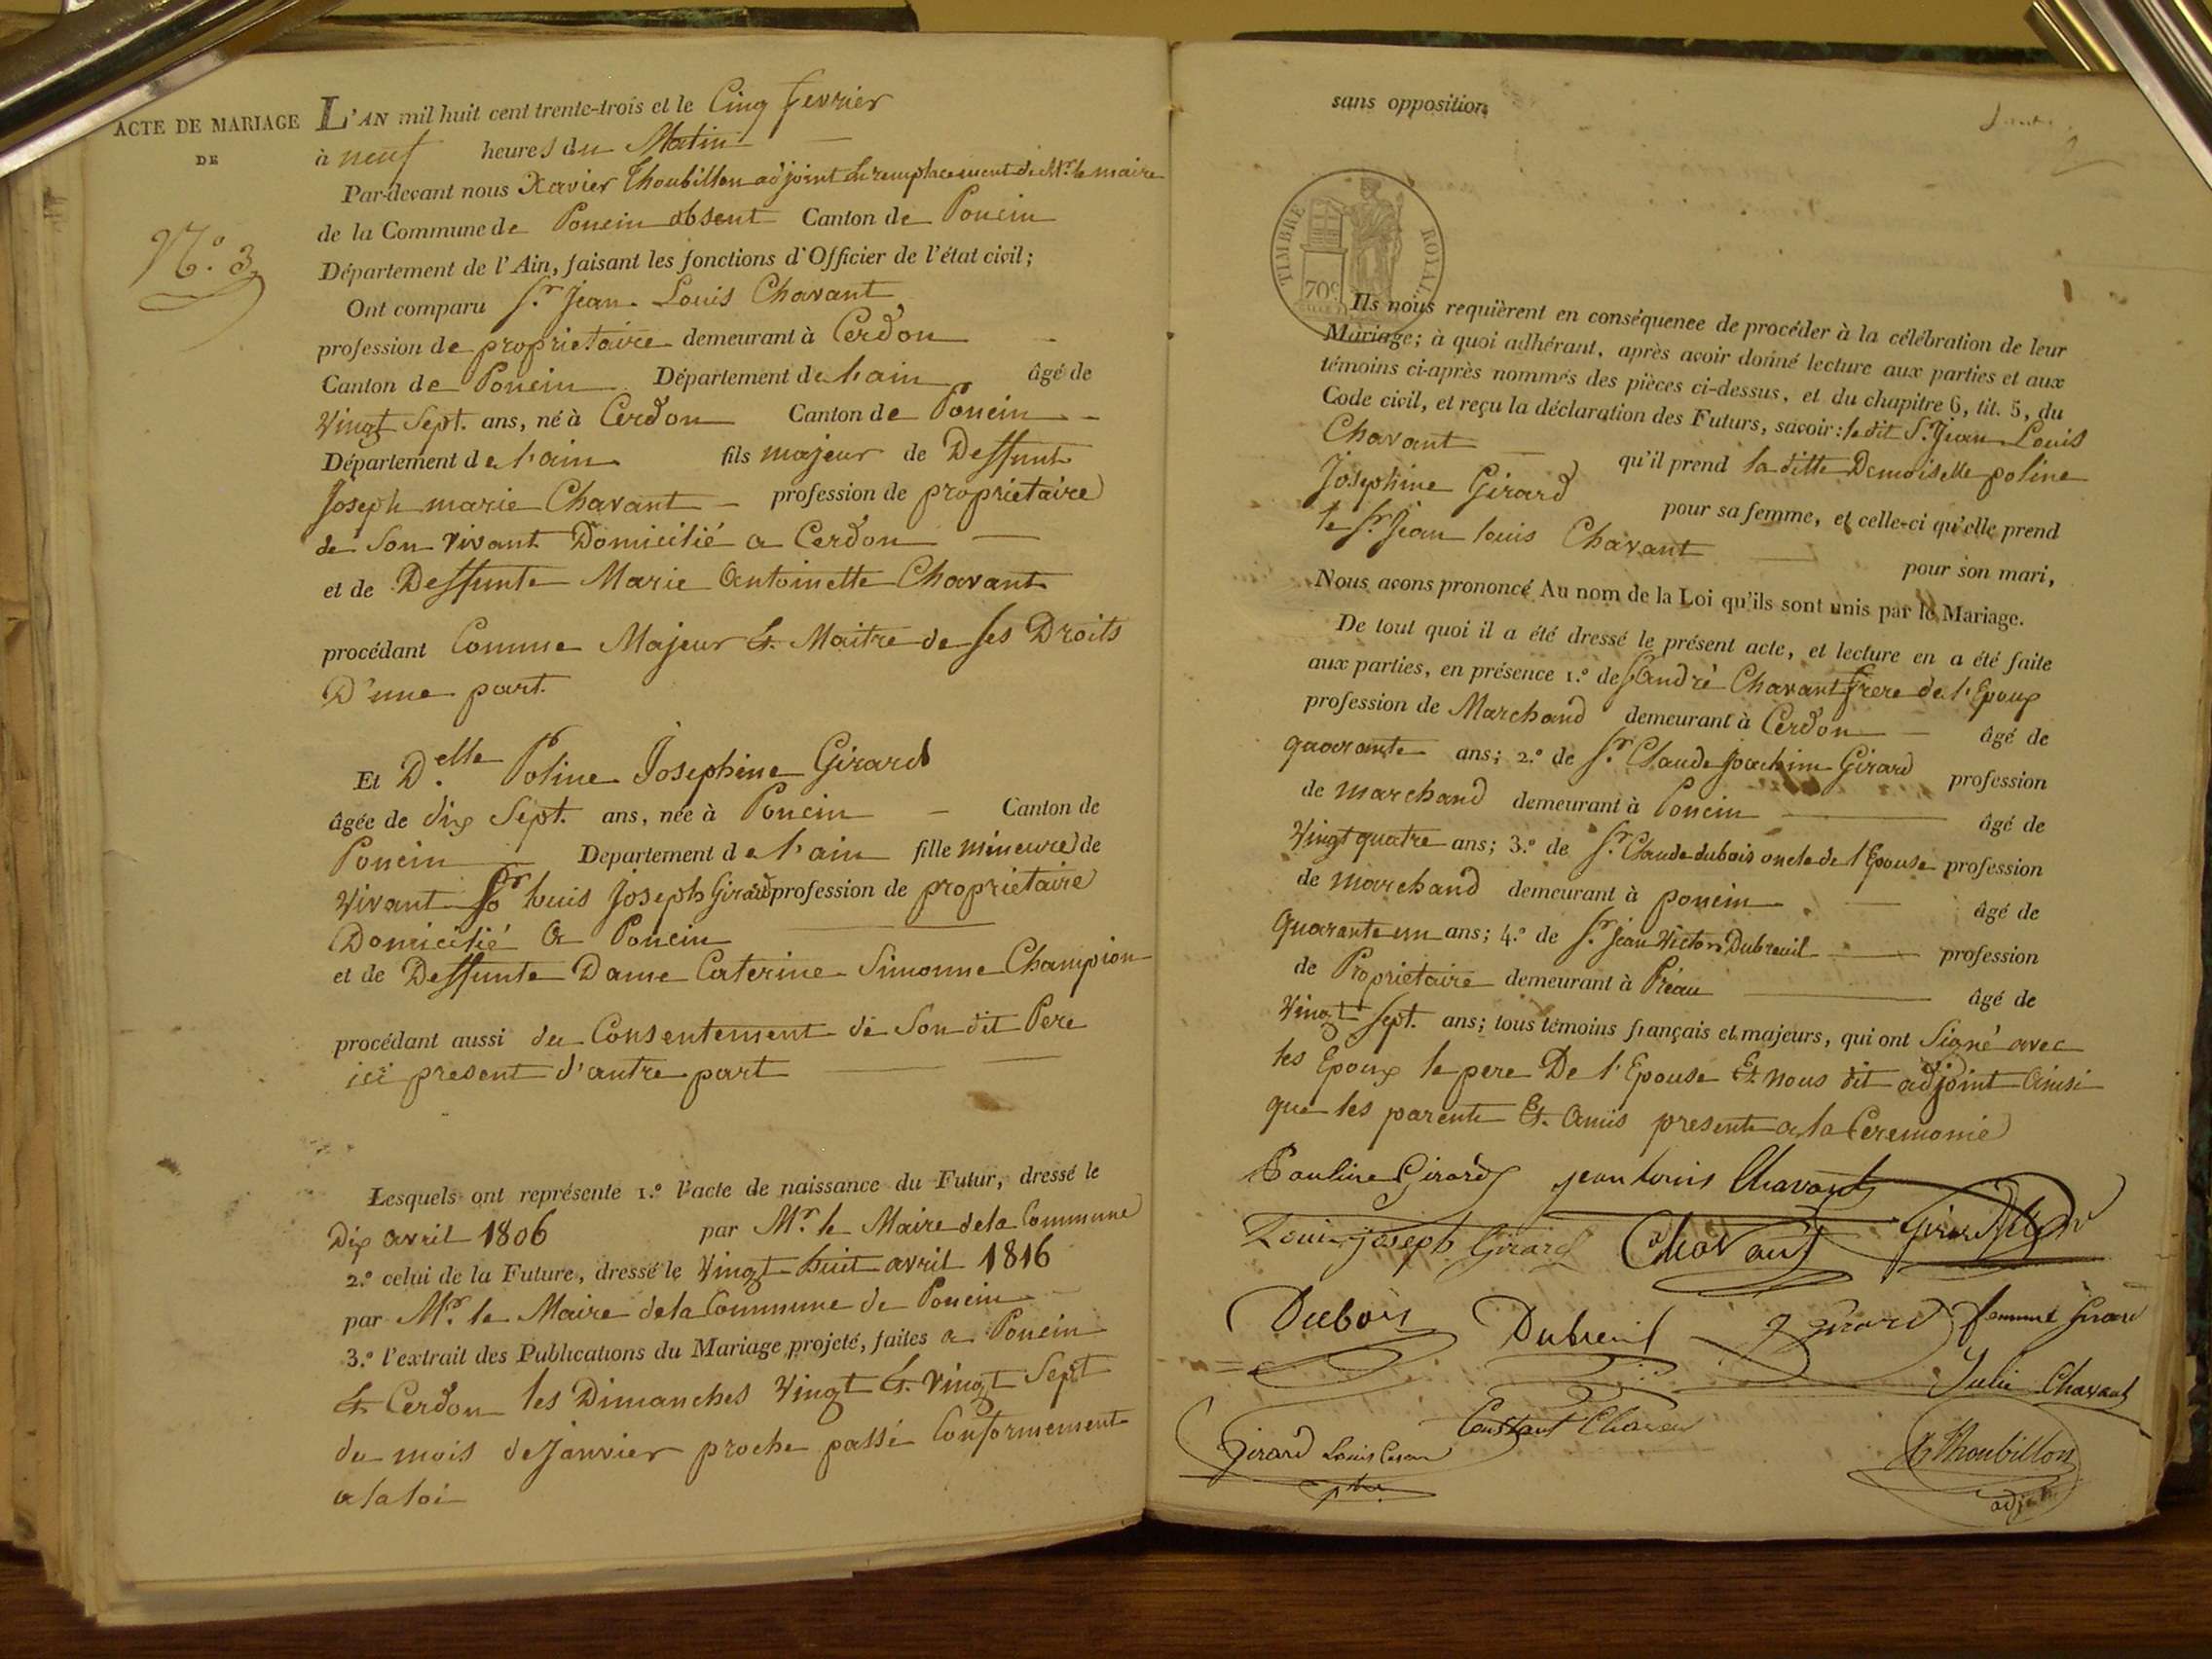 ACTE DE MARIAGE
DE
N.º 3
L'AN mil huit cent trente-trois et le Cinq fevrier
à neuf heures du Matin
Par-devant nous Xavier Thoubillon adjoint en remplacement de Mr. le maire
de la Commune de Poncin absent Canton de Poncin
Département de l'Ain, faisant les fonctions d'Officier de l'état civil;
Ont comparu S.r Jean Louis Chavant
profession de proprietaire demeurant à Cerdon
Canton de Poncin Département de l'ain âgé de
Vingt Sept. ans, né à Cerdon Canton de Poncin
Département de l'ain fils majeur de Deffunt
Joseph marie Chavant profession de proprietaire
de Son vivant Domicilié a Cerdon
et de Deffunte Marie Antoinette Chavant
procédant Comme Majeur Et Maitre de ses Droits
D'une part.
Et D.elle Poline Josephine Girard
âgée de dix Sept. ans, née à Poncin Canton de
Poncin Departement de l'ain fille mineure de
Vivant Sr louis Joseph Girard profession de proprietaire
Domicilié a Poncin
et de Deffunte Dame Caterine Simonne Champion
procédant aussi du Consentement de Son dit Pere
ici present d'autre part
Lesquels ont représente 1.º l'acte de naissance du Futur, dressé le
Dix avril 1806 par Mr. le Maire de la Commune
2.º celui de la Future, dressé le Vingt huit avril 1816
par Mr. le Maire de la Commune de Poncin
3.º l'extrait des Publications du Mariage projeté, faites a Poncin
Et Cerdon les Dimanches Vingt Et Vingt Sept
du mois de Janvier proche passé Conformement
a la loi
sans opposition
TIMBRE ROYAL
70c
Ils nous requièrent en conséquence de procéder à la célébration de leur
Mariage; à quoi adhérant, après avoir donné lecture aux parties et aux
témoins ci-après nommés des pièces ci-dessus, et du chapitre 6, tit. 5, du
Code civil, et reçu la déclaration des Futurs, savoir: le dit S.r Jean Louis
Chavant qu'il prend la ditte Demoiselle poline
Josephine Girard pour sa femme, et celle-ci qu'elle prend
le Sr Jean louis Chavant pour son mari,
Nous avons prononcé Au nom de la Loi qu'ils sont unis par le Mariage.
De tout quoi il a été dressé le présent acte, et lecture en a été faite
aux parties, en présence 1.º de Sr André Chavant frere de l'Epoux
profession de Marchand demeurant à Cerdon âgé de
quarante ans; 2.º de Sr. Claude Joachim Girard profession
de marchand demeurant à Poncin âgé de
Vingt quatre ans; 3.º de Sr. Claude dubois oncle de l'Epouse profession
de marchand demeurant à poncin âgé de
Quarante un ans; 4.º de Sr. Jean Victor Dubreuil profession
de Proprietaire demeurant à Préau âgé de
Vingt Sept. ans; tous témoins français et majeurs, qui ont Signé avec
les Epoux le pere De l'Epouse Et nous dit adjoint Ainsi
que les parents Et Amis presents a la Ceremonie
Pauline Girard jean louis Chavant
Louis joseph Girard Chavant Girard
Dubois Dubreuil J Girard femme Girard
Julie Chavant
Girard Louis Cesar Constant Chavant
X Thoubillon
adjoint